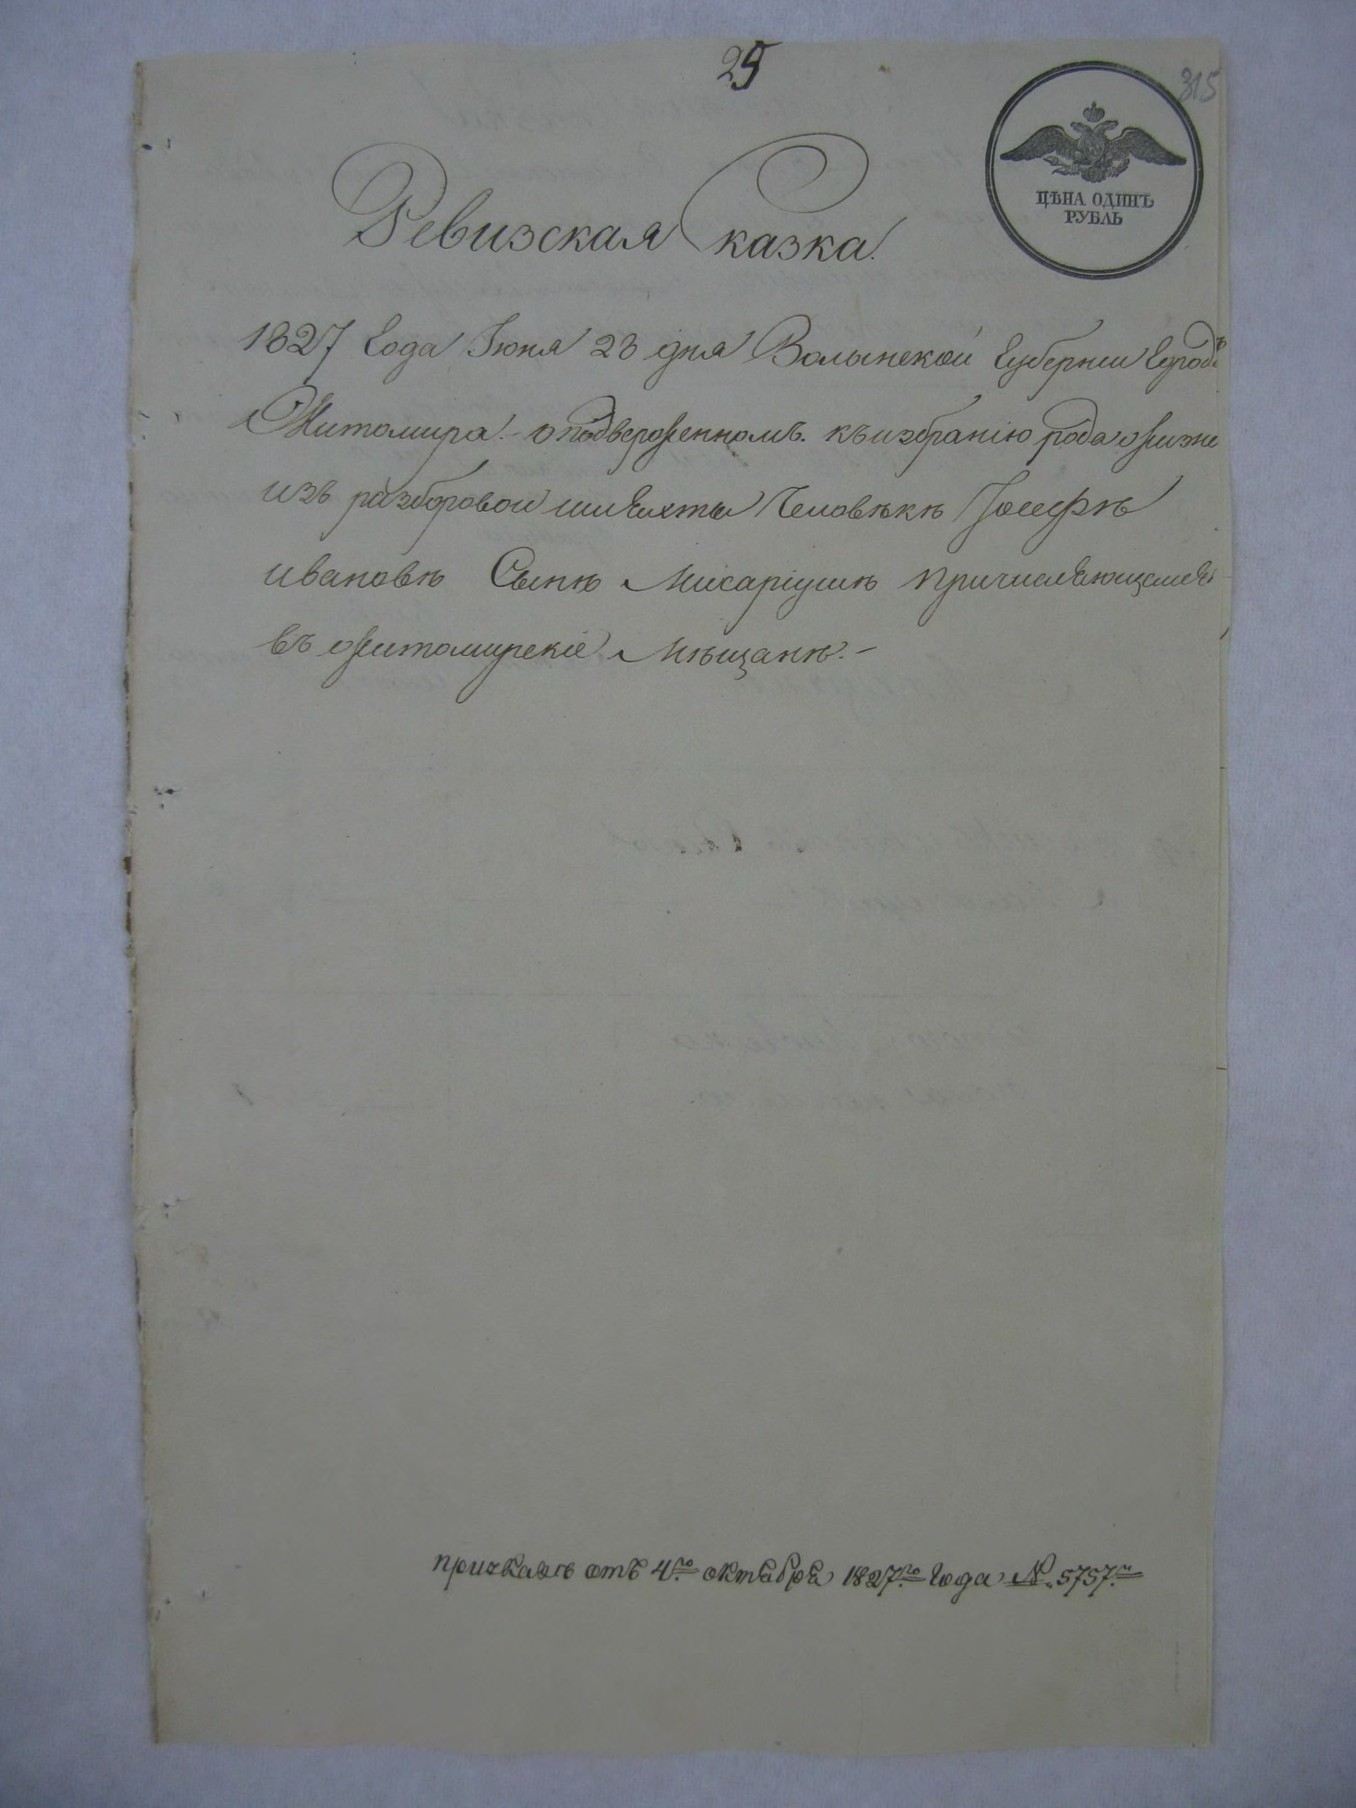 25
315
ЦѢНА ОДИНЪ
РУБЛЬ
Ревизская Сказка.
1827 Года Июня 23 дня Волынской Губернии Города
Житомира. о подверженномъ. къ избранію рода жизни
изъ разборовой шляхты Человѣкѣ Іосефѣ
ивановѣ Сынѣ Мисаріушѣ причисляющемся
въ житомирскіе Мѣщанѣ.-
приказъ отъ 4го октября 1827го Года №. 5757.